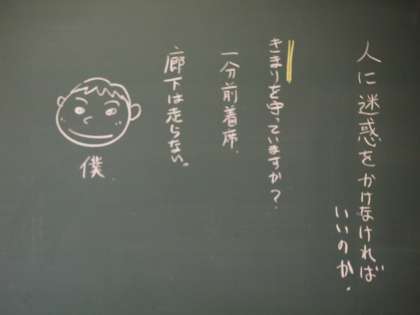 人に迷惑をかけなければ
いいのか.
きまりを守っていますか?
一分前着席.
廊下は走らない。
僕.